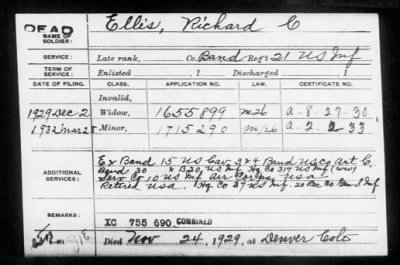 DEAD
NAME OF SOLDIER: Ellis, Richard C
SERVICE: Late rank, Co. Band Reg't 21 US Inf
TERM OF SERVICE: Enlisted , 1 Discharged , 1
DATE OF FILING. CLASS. APPLICATION NO. LAW. CERTIFICATE NO.
Invalid,
1929 Dec 2 Widow, 1655899 m26 a-8-27-30
1932 Mar 28 Minor, 1715290 m/26 a-2-2-33
ADDITIONAL SERVICES: Ex Band 15 US Cav 3 & 4 Band US Co Art C.
Band 30 & B 20, US Inf Hq Co 319 US Inf (WW)
Serv Co 10 US Inf Air Corps, USA
Retired USA. Hq Co 37 US Inf.
REMARKS: XC 755 690 COMBINED
Died Nov 24, 1929, at Denver Colo